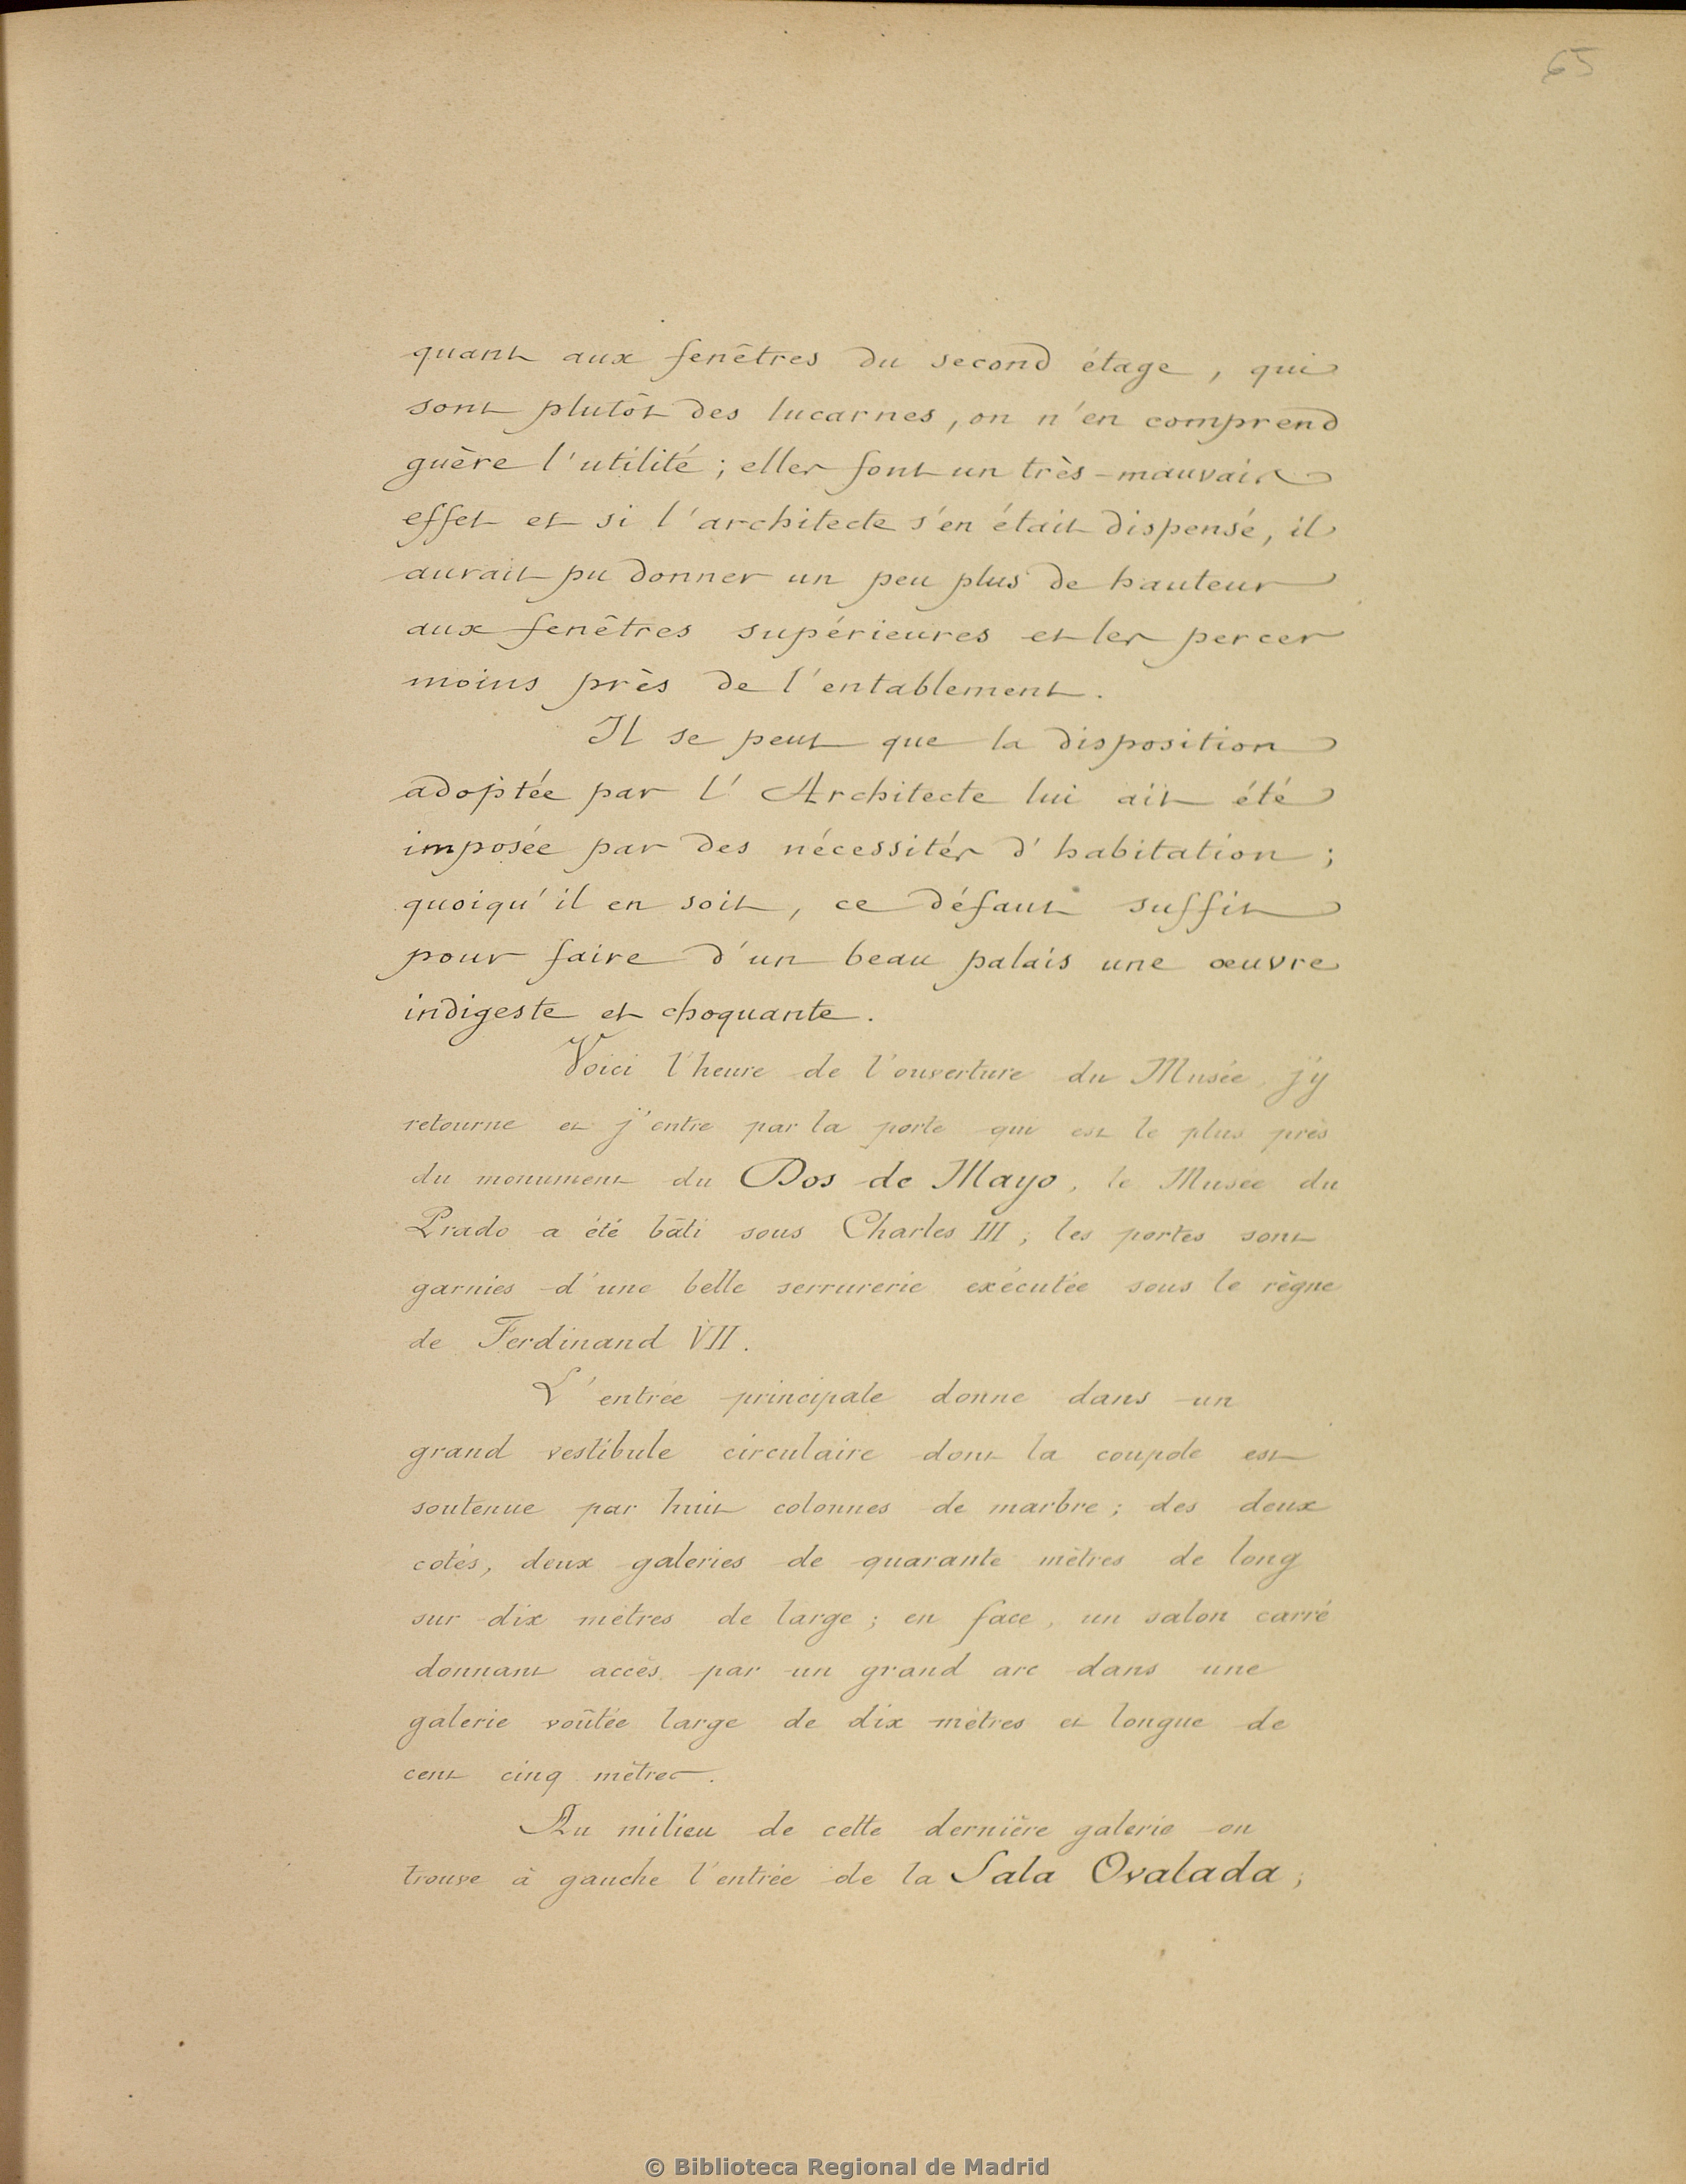 65
quant aux fenêtres du second étage, qui
sont plutôt des lucarnes, on n'en comprend
guère l'utilité; elles font un très-mauvais
effet et si l'architecte s'en était dispensé, il
aurait pu donner un peu plus de hauteur
aux fenêtres supérieures et les percer
moins près de l'entablement.
Il se peut que la disposition
adoptée par l'Architecte lui ait été
imposée par des nécessités d'habitation;
quoiqu'il en soit, ce défaut suffit
pour faire d'un beau palais une œuvre
indigeste et choquante.
Voici l'heure de l'ouverture du Musée, j'y
retourne et j'entre par la porte qui est le plus près
du monument du Dos de Mayo, le Musée du
Prado a été bâti sous Charles III, les portes sont
garnies d'une belle serrurerie exécutée sous le règne
de Ferdinand VII.
L'entrée principale donne dans un
grand vestibule circulaire dont la coupole est
soutenue par huit colonnes de marbre; des deux
cotés, deux galeries de quarante mètres de long
sur dix mètres de large; en face, un salon carré
donnant accès par un grand arc dans une
galerie voûtée large de dix mètres et longue de
cent cinq mètres.
Au milieu de cette dernière galerie on
trouve à gauche l'entrée de la Sala Ovalada;
© Biblioteca Regional de Madrid